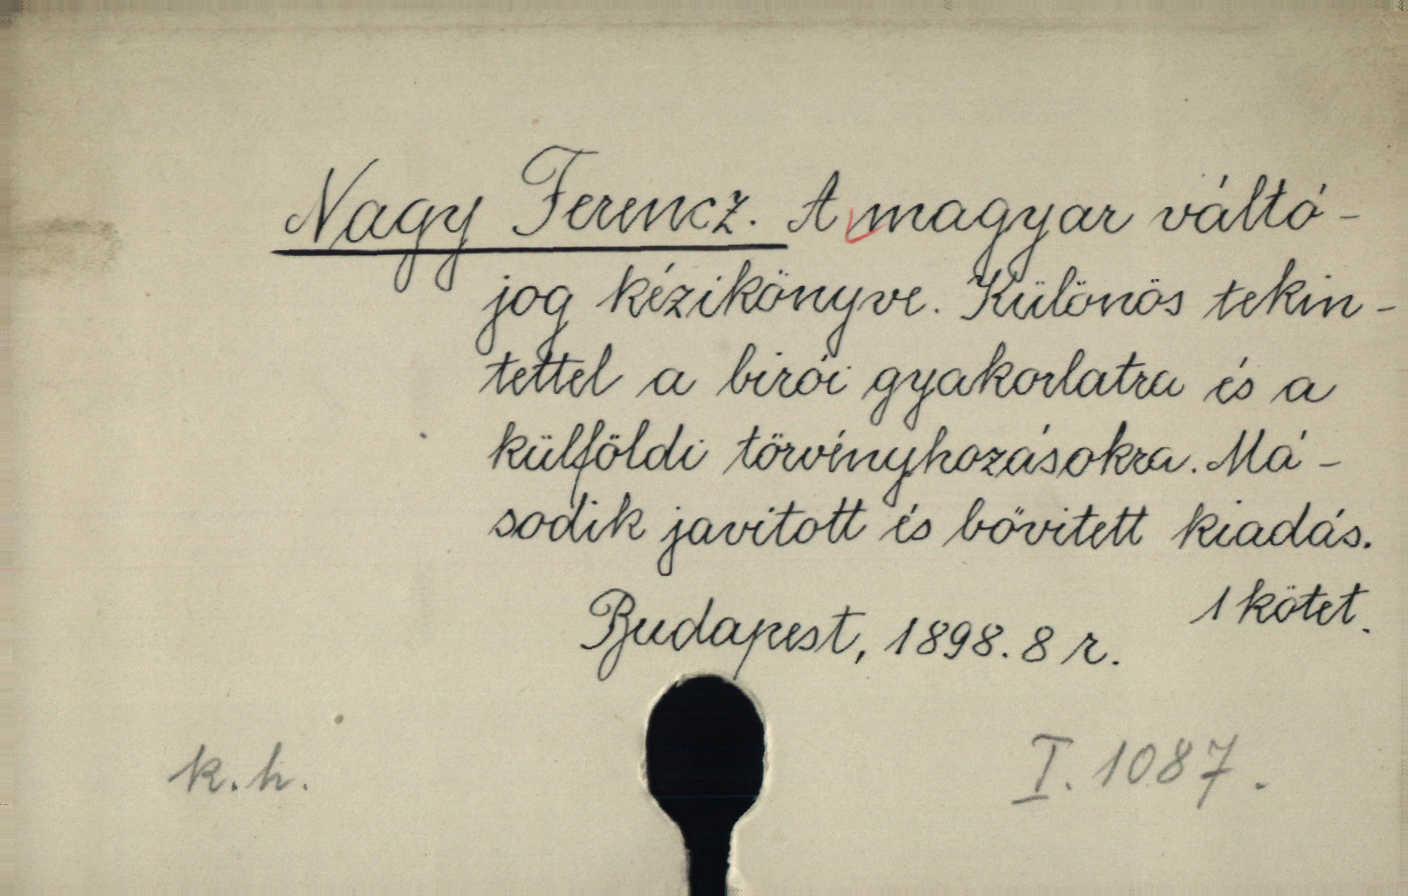 Nagy Ferencz. A magyar váltó-
jog kézikönyve. Különös tekin-
tettel a birói gyakorlatra és a
külföldi törvényhozásokra. Má-
sodik javitott és bővitett kiadás.
1 kötet.
Budapest, 1898. 8 r.
k. h.
I. 1087.